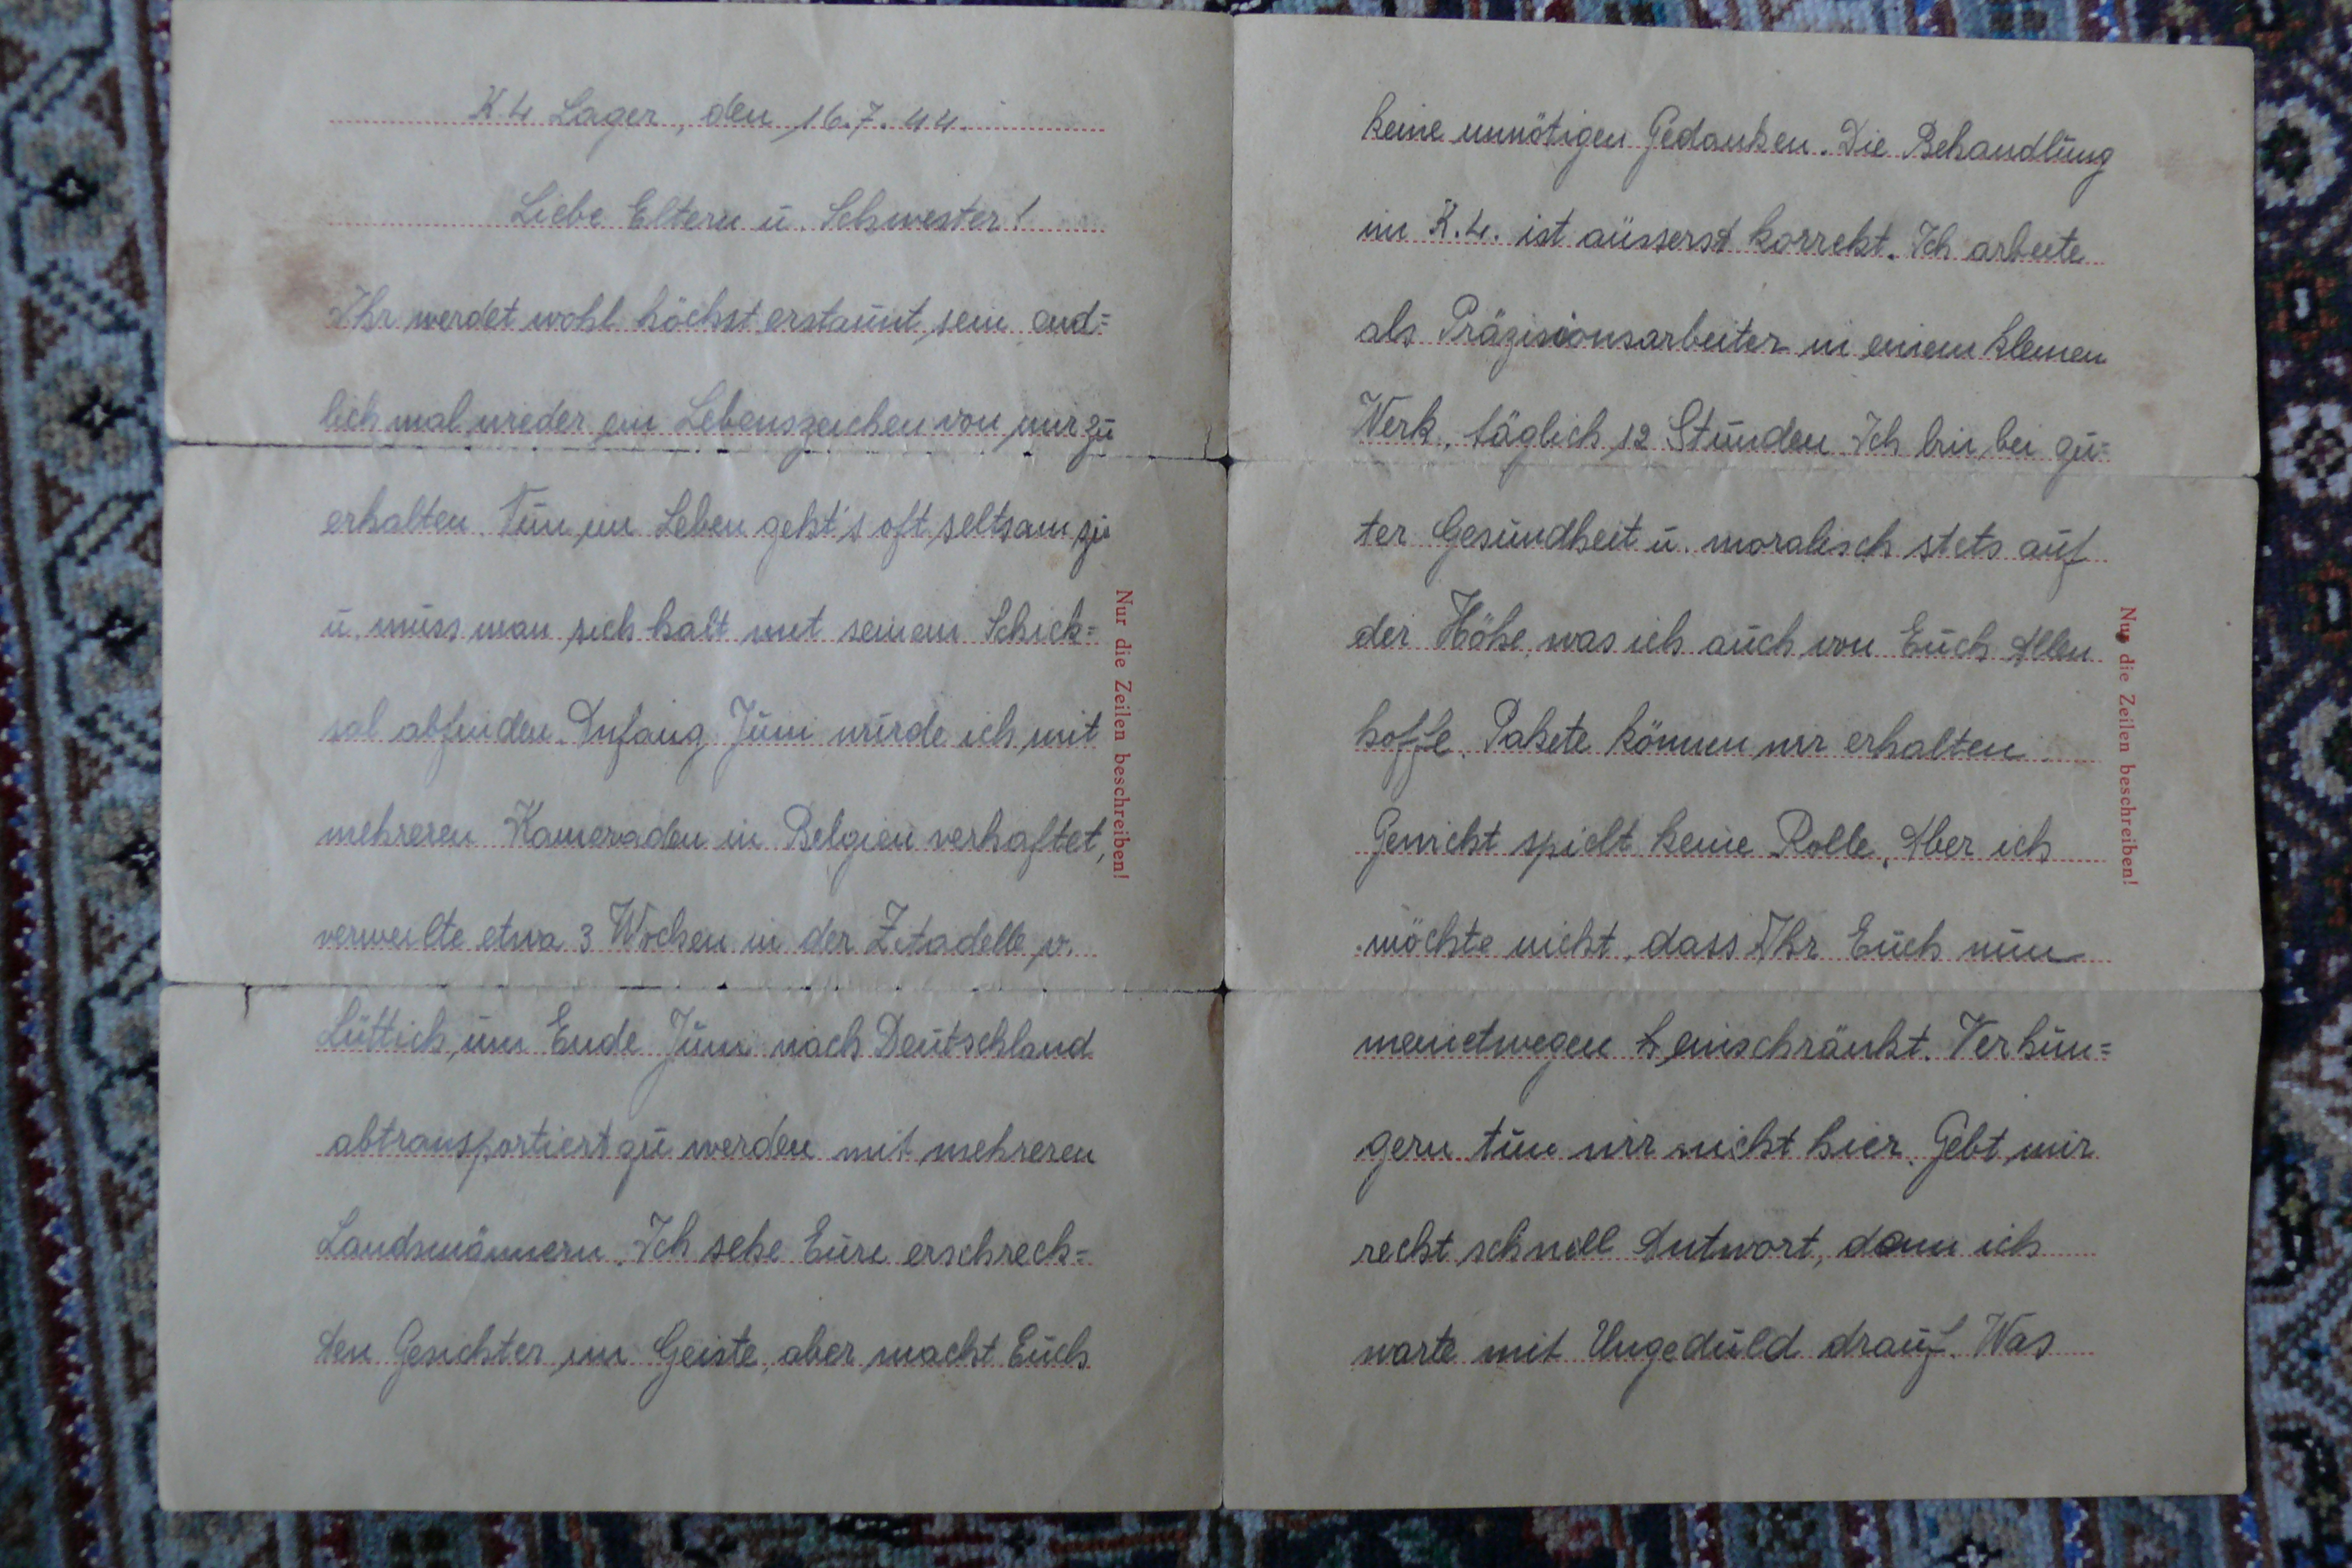 K.L. Lager, den 16.7.44.
Liebe Eltern u. Schwester!
Ihr werdet wohl höchst erstaunt sein end=
lich mal wieder ein Lebenszeichen von mir zu
erhalten. Tun im Leben geht's oft seltsam zu
u. muss man sich halt mit seinem Schick=
sal abfinden. Anfang Juni wurde ich mit
mehreren Kameraden in Belgien verhaftet,
verweilte etwa 3 Wochen in der Zitadelle v.
Lüttich, um Ende Juni nach Deutschland
abtransportiert zu werden mit mehreren
Landsmännern. Ich sehe Eure erschreck=
ten Gesichter im Geiste, aber macht Euch
Nur die Zeilen beschreiben!
keine unnötigen Gedanken. Die Behandlung
im K.L. ist äusserst korrekt. Ich arbeite
als Präzisionsarbeiter in einem kleinen
Werk, täglich 12 Stunden. Ich bin bei gu=
ter Gesundheit u. moralisch stets auf
der Höhe, was ich auch von Euch Allen
hoffe. Pakete können wir erhalten
Gewicht spielt keine Rolle. Aber ich
möchte nicht, dass Ihr Euch nun
meinetwegen einschränkt. Verhun=
gern tun wir nicht hier. Gebt mir
recht schnell Antwort, denn ich
warte mit Ungeduld drauf. Was
Nur die Zeilen beschreiben!